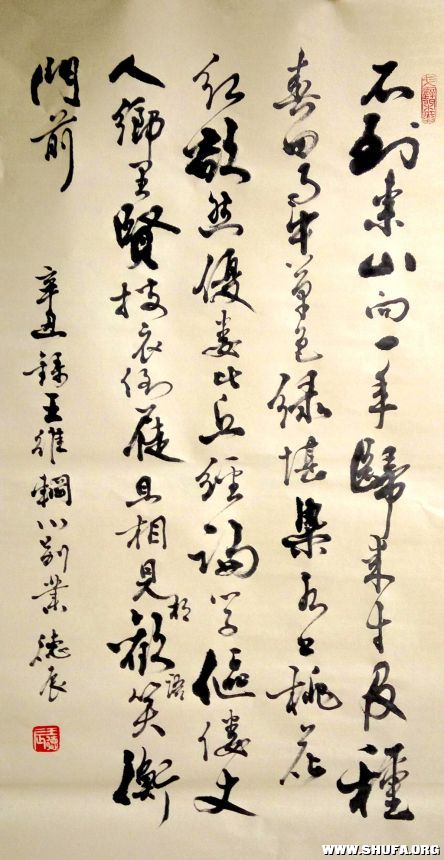 不到東山向一年歸來才及種
春田雨中草色綠堪染水上桃花
紅欲然優婁比丘經論學傴僂丈
人鄉里賢披衣倒屣且相見相歡語笑衡
門前
辛丑錄王維輞川別業德辰
WWW.SHUFA.ORG